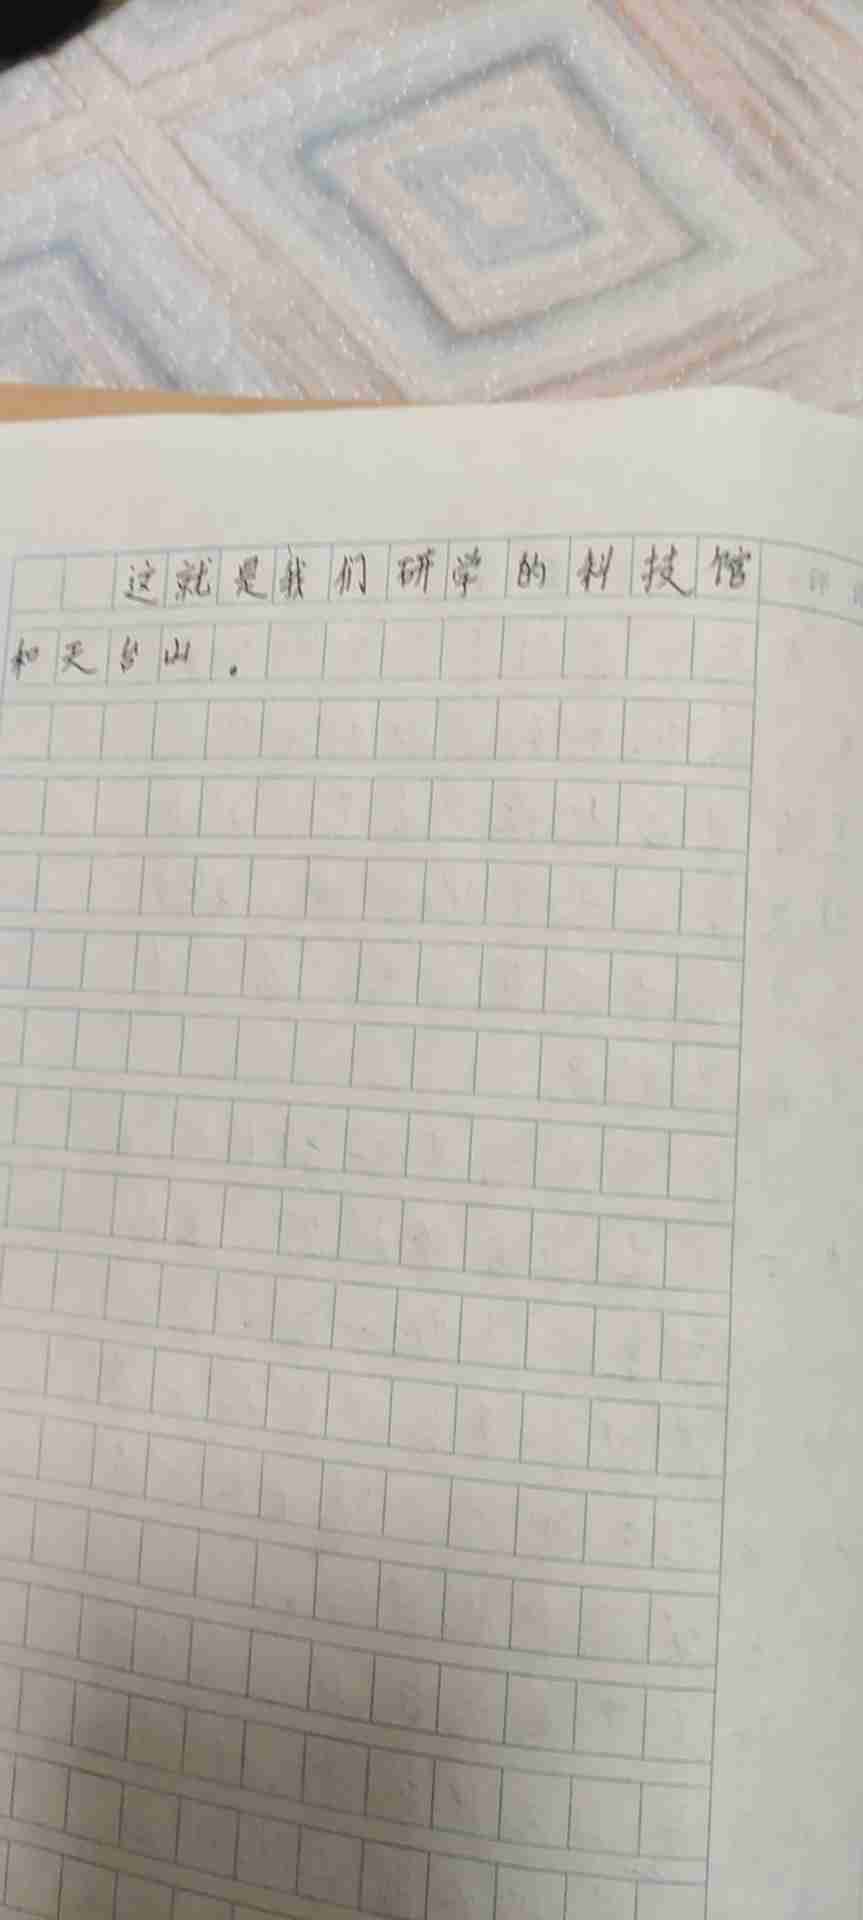 这就是我们研学的科技馆
和天台山.